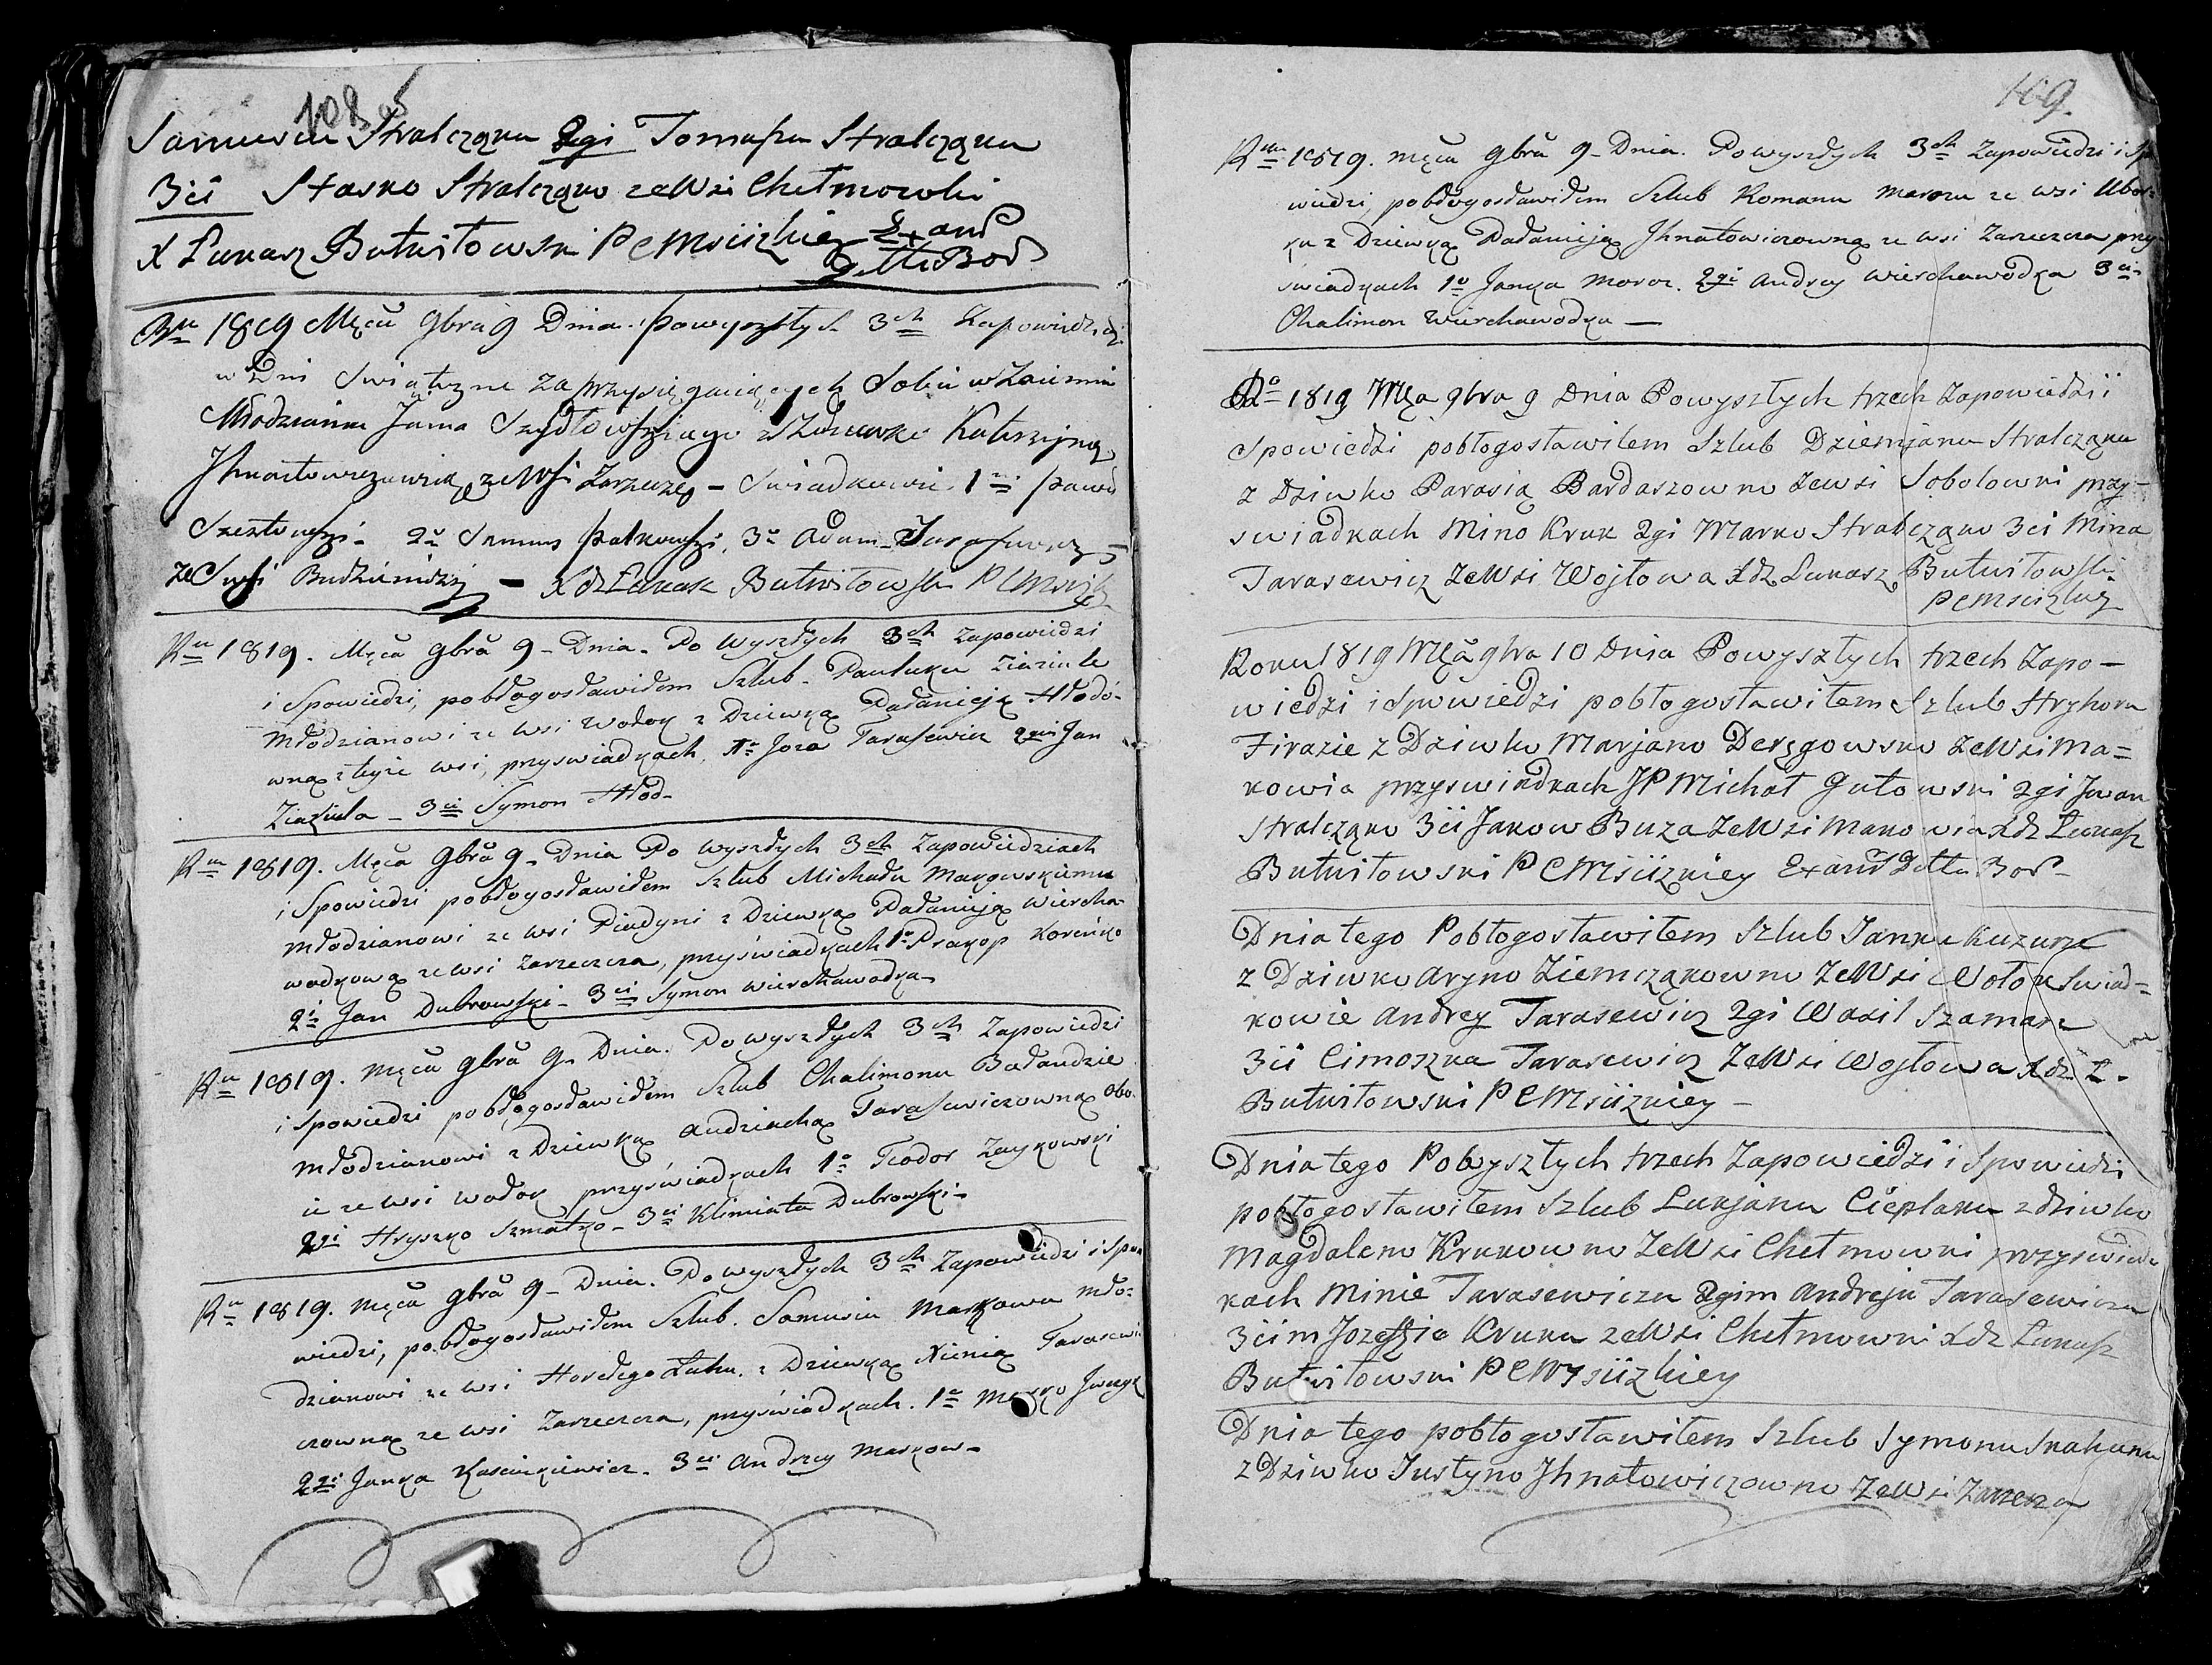 108
Samusiu Stralcząka 2gi Tomasza Stralcząka
3ci Stasko Stralczako ze Wsi Chełmowki
X Łukasz Butwiłowski P C Mscizkiey
R<sup>u</sup> 1819 Męca 9bra 9 Dnia. po wyszłych 3<sup>ch</sup> Zapowiedziach
w Dni Swiąteczne zaprzysięgaiących Sobie wzaiemnie
Młodziana Jana Szydłowskiego z Katerzyną
Jhnatowiczowną ze Wsi Zarzecze – Swiadkowie 1<sup>m</sup>
2<sup>o</sup> Patkowski, 3<sup>o</sup> Adam
ze Wsi – Xdz Łukasz Butwiłowski P C Mscizk
R<sup>u</sup> 1819. Męca 9bra 9 – Dnia. Po wyszłych 3<sup>ch</sup> zapowiedzi
i Spowiedzi, pobłogosławiłem Szlub. Pauluku Ziaziule
Młodzianowi ze wsi Wołok z Dziewką Pałanieją Hłodo-
wną z teyże wsi, przy swiadkach, 1<sup>o</sup> Joza Tarasewicz 2<sup>gi</sup> Jan
Ziaziula – 3<sup>ci</sup> Symon Hłod –
R<sup>u</sup> 1819. Męca 9bra 9 – Dnia Po wyszłych 3<sup>ch</sup> Zapowiedziach
i Spowiedzi pobłogosławiłem Szlub Michału
Młodzianowi ze wsi Piadyni z Dziewką Pałanieją Wiercha-
wodkową ze wsi Zarzecza, przy świadkach 1<sup>o</sup> Prakop
2<sup>i</sup> Jan Dubrowski – 3<sup>ci</sup> Symon Wierchawodka –
R<sup>u</sup> 1819. Męca 9bra 9 – Dnia. Po wyszłych 3<sup>ch</sup> Zapowiedzi
i Spowiedzi pobłogosławiłem Szlub Chalimonu Bałandzie
Młodzianowi z Dziewką Audziuchą Tarasewiczowną obo-
ie ze wsi Wołok przy świadkach 1<sup>o</sup> Teodor Zaykowski
2<sup>gi</sup> Hryszko Szmatko – 3<sup>ci</sup> Klimiata Dubrowski –
R<sup>u</sup> 1819. Męca 9bra 9 – Dnia. Po wyszłych 3<sup>ch</sup> Zapowiedzi i Spo
wiedzi, pobłogosławiłem Szlub. Samusiu Markowu Mło-
dzianowi ze wsi Horełego Łuhu. z Dziewką Xienią Tarasewi
czowną ze wsi Zarzecza, przy świadkach. 1<sup>o</sup>
2<sup>gi</sup> Janka Kasciukiewicz. 3<sup>ci</sup> Andrzey Markow –
109.
R<sup>u</sup> 1819. Męca 9bra 9 – Dnia. Po wyszłych 3<sup>ch</sup> Zapowiedzi i Spo
wiedzi, pobłogosławiłem Szlub Romanu Marozu ze wsi Ubor-
ku z Dziewką Pałanieją Jhnatowiczowną ze wsi Zarzecza przy
swiadkach 1<sup>o</sup> Janka Moroz. 2<sup>gi</sup> Andrey Wierchawodka 3<sup>ci</sup>
Chalimon Wierchawodka –
R<sup>o</sup> 1819 Męa 9bra 9 Dnia Powyszłych trzech Zapowiedzi i
Spowiedzi pobłogosławiłem Szlub Dziemjanu Stralcząku
z Dziwko Parasią Bardaszowno ze Wsi Sobolowki przy-
swiadkach Mino Kruk 2gi Marko Stralcząko 3ci Mina
Tarasewicz ze Wsi Wojłowa Xdz Łukasz Butwiłowski
P C Mscizkiey
Roku 1819 Męa 9bra 10 Dnia Powyszłych trzech Zapo –
wiedzi i Spowiedzi pobłogosławiłem Szlub Hryhoru
Firazie z Dziwko Marjano Derągowsko ze Wsi Ma =
kowia przyswiadkach JP Michał Gutowski 2gi Jwan
Stralcząko 3ci Jakow Buza ze Wsi Makowia Xdz Łukasz
Butwiłowski P C Msciizkiey
Dnia tego Pobłogosławiłem Szlub Janku Kuzurze
z Dziwko Aryno Ziemcząkowno ze Wsi Wołok Swiad =
kowie Andrey Tarasewicz 2gi Wasil Szaman
3ci Cimoszka Tarasewicz ze Wsi Wojłowa Xdz Ł.
Butwiłowski P C Msciizkiey –
Dnia tego Powyszłych trzech Zapowiedzi i Spowiedzi
pobłogosławiłem Szlub Łukjanu Cieplaku z dziwko
Magdaleno Krukowno ze Wsi Chełmowki przyswiad
kach Minie Tarasewiczu 2gim Andreju Tarasewiczu
3cim Jozefie Kruku ze Wsi Chełmowki Xdz Łukasz
Butwiłowski P C Msciizkiey
Dnia tego pobłogosławiłem Szlub Symonu Skakunu
z Dziwko Justyno Jhnatowiczowno ze Wsi Zarzecza